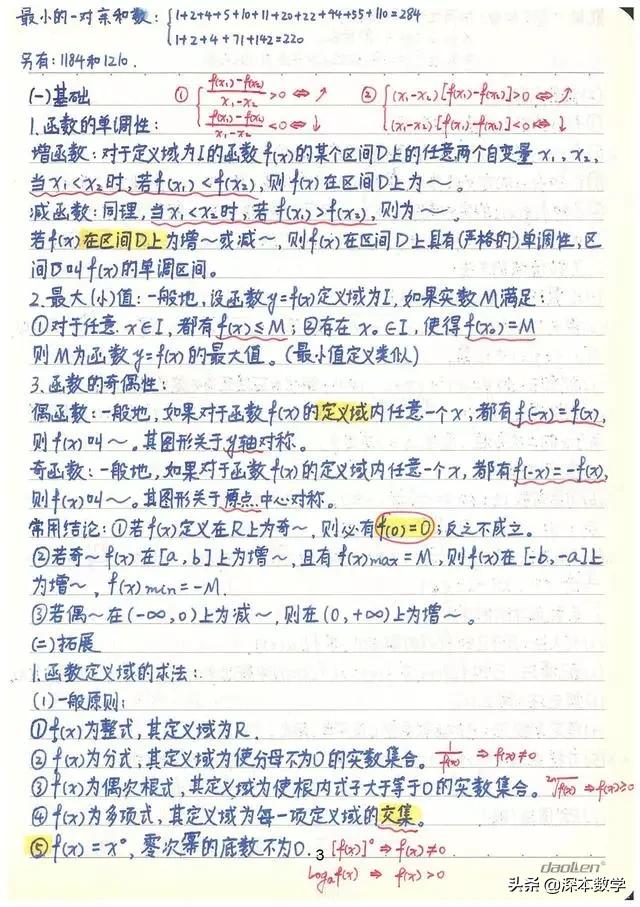 最小的一对亲和数: { 1+2+4+5+10+11+20+22+44+55+110=284
1+2+4+71+142=220
另有: 1184和1210.
(一)基础 ① { f(x₁)-f(x₂)/x₁-x₂ >0 ⇔ ↗ ② { (x₁-x₂)[f(x₁)-f(x₂)]>0 ⇔ ↗
1.函数的单调性: f(x₁)-f(x₂)/x₁-x₂ <0 ⇔ ↓ (x₁-x₂)[f(x₁)-f(x₂)]<0 ⇔ ↓
增函数: 对于定义域为I的函数f(x)的某个区间D上的任意两个自变量x₁、x₂,
当x₁<x₂时,若f(x₁)<f(x₂),则f(x)在区间D上为～。
减函数:同理,当x₁<x₂时,若f(x₁)>f(x₂),则为～。
若f(x)在区间D上为增～或减～,则f(x)在区间D上具有(严格的)单调性,区
间D叫f(x)的单调区间。
2.最大(小)值:一般地,设函数y=f(x)定义域为I,如果实数M满足:
①对于任意x∈I,都有f(x)≤M;②有在x₀∈I,使得f(x₀)=M
则M为函数y=f(x)的最大值。(最小值定义类似)
3.函数的奇偶性:
偶函数:一般地,如果对于函数f(x)的定义域内任意一个x,都有f(-x)=f(x),
则f(x)叫～。其图形关于y轴对称。
奇函数:一般地,如果对于函数f(x)的定义域内任意一个x,都有f(-x)=-f(x),
则f(x)叫～。其图形关于原点中心对称。
常用结论:①若f(x)定义在R上为奇～,则必有f(0)=0;反之不成立。
②若奇～f(x)在[a,b]上为增～,且有f(x)max=M,则f(x)在[-b,-a]上
为增～,f(x)min=-M.
③若偶～在(-∞,0)上为减～,则在(0,+∞)上为增～。
(二)拓展
1.函数定义域的求法:
(1)一般原则:
①f(x)为整式,其定义域为R.
②f(x)为分式,其定义域为使分母不为0的实数集合。 1/f(x) ⇒ f(x)≠0
③f(x)为偶次根式,其定义域为使根内式子大于等于0的实数集合。 ²ⁿ√f(x) ⇒ f(x)≥0
④f(x)为多项式,其定义域为每一项定义域的交集。
⑤f(x)=x⁰,零次幂的底数不为0. 3 [f(x)]⁰ ⇒ f(x)≠0
logₐf(x) ⇒ f(x)>0
daolien
头条 @深本数学